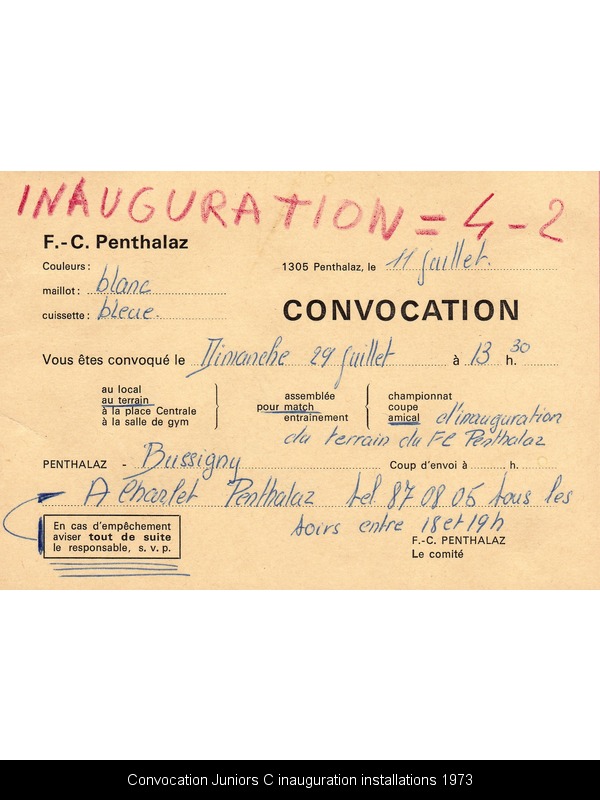 INAUGURATION = 4 - 2
F.-C. Penthalaz
Couleurs :
maillot : blanc
cuissette : bleue.
1305 Penthalaz, le 11 juillet.
CONVOCATION
Vous êtes convoqué le Dimanche 29 juillet à 13 h. 30
au local
au terrain
à la place Centrale
à la salle de gym
assemblée
pour match
entraînement
championnat
coupe
amical d'inauguration
du terrain du FC Penthalaz
PENTHALAZ - Bussigny Coup d'envoi à h.
A Charlet Penthalaz tel. 87 08 05 tous les
soirs entre 18 et 19h
En cas d'empêchement
aviser tout de suite
le responsable, s. v. p.
F.-C. PENTHALAZ
Le comité
Convocation Juniors C inauguration installations 1973